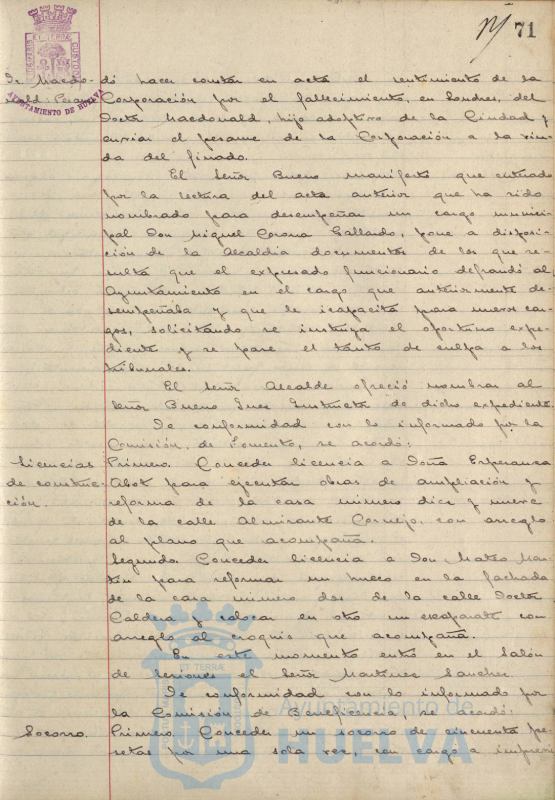 71
dó hacer constar en acta el sentimiento de la
Corporación por el fallecimiento, en Londres, del
Doctor Macdonald, hijo adoptivo de la Ciudad y
enviar el pesame de la Corporación a la viu-
da del finado.
El Señor Bueno manifestó que enterado
por la lectura del acta anterior que ha sido
nombrado para desempeñar un cargo munici-
pal Don Miguel Corona Gallardo, pone a disposi-
ción de la Alcaldia documentos de los que re-
sulta que el expresado funcionario defraudó al
Ayuntamiento en el cargo que anteriormente de-
sempeñaba y que le icapacita para nuevos car-
gos, solicitando se instruya el oportuno expe-
diente y se pase el tanto de culpa a los
tribunales.
El Señor Alcalde ofreció nombrar al
Señor Bueno Juez Instructor de dicho expediente.
De conformidad con lo informado por la
Comisión de Fomento, se acordó:
Licencias
de construc-
ción.
Primero. Conceder licencia a Doña Esperanza
Abot para ejecutar obras de ampliación y
reforma de la casa número diez y nueve
de la calle Almirante Cornejo, con arreglo
al plano que acompaña.
Segundo. Conceder licencia a Don Mateo Mar-
tín para reformar un hueco en la fachada
de la casa número dos de la calle Doctor
Caldera y colocar en otro un escaparate con
arreglo al croquis que acompaña.
En este momento entró en el Salón
de Sesiones el Señor Martinez Sanchez.
De conformidad con lo informado por
la Comisión de Beneficencia, se acordó:
Socorro.
Primero. Conceder un socorro de cincuenta pe-
setas por una sola vez, con cargo a imprevi
AYUNTAMIENTO DE HUELVA
Ayuntamiento de
HUELVA